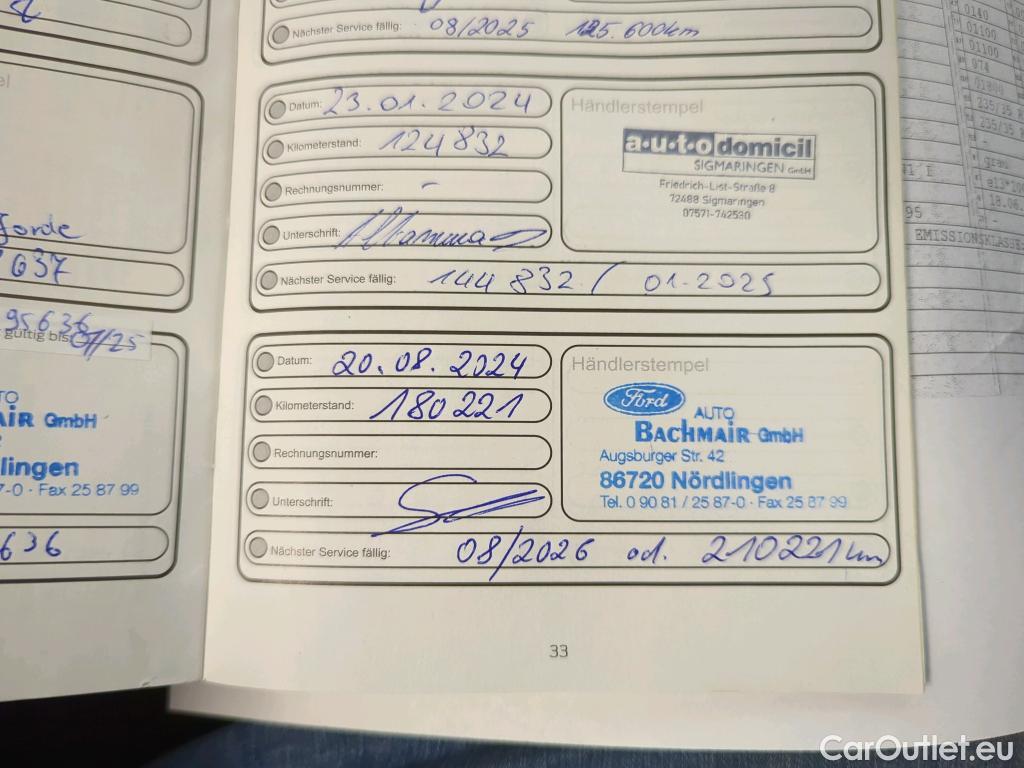 Nächster Service fällig: 08/2025 125.600km
Datum: 23.01.2024
Kilometerstand: 124832
Rechnungsnummer: -
Unterschrift:
Nächster Service fällig: 144 832 / 01-2025
Händlerstempel
a·u·t·o domicil
SIGMARINGEN GmbH
Friedrich-List-Straße 8
72488 Sigmaringen
07571-742530
Datum: 20.08.2024
Kilometerstand: 180221
Rechnungsnummer:
Unterschrift:
Nächster Service fällig: 08/2026 od. 210221km
Händlerstempel
Ford
AUTO
BACHMAIR GmbH
Augsburger Str. 42
86720 Nördlingen
Tel. 0 90 81 / 25 87-0 · Fax 25 87 99
33
637
95636
gültig bis: 07/25
GmbH
lingen
7-0 · Fax 25 87 99
636
0140
01100
01100
074
235/35 R
235/35
18.06.
95
EMISSIONSKLASSE
CarOutlet.eu